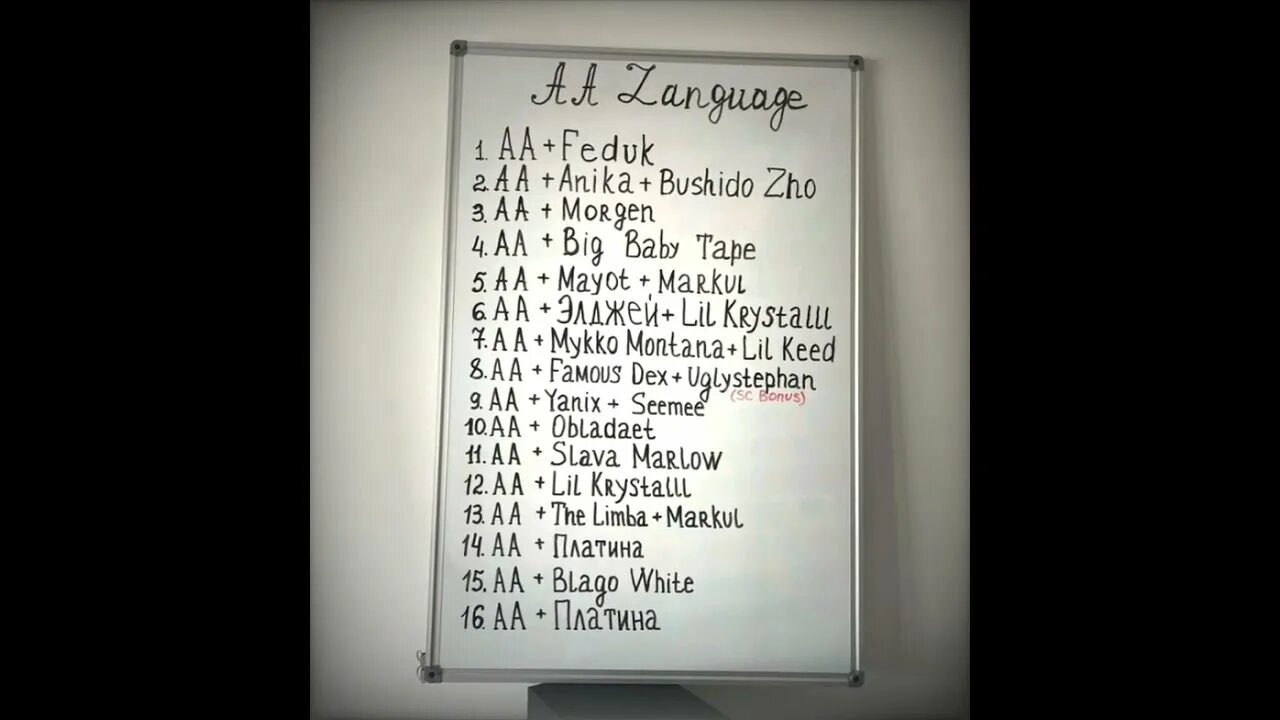 AA Language
1. AA + Feduk
2. AA + Anika + Bushido Zho
3. AA + Morgen
4. AA + Big Baby Tape
5. AA + Mayot + Markul
6. AA + Элджей + Lil Krystalll
7. AA + Mykko Montana + Lil Keed
8. AA + Famous Dex + Uglystephan
(SC Bonus)
9. AA + Yanix + Seemee
10. AA + Obladaet
11. AA + Slava Marlow
12. AA + Lil Krystalll
13. AA + The Limba + Markul
14. AA + Платина
15. AA + Blago White
16. AA + Платина